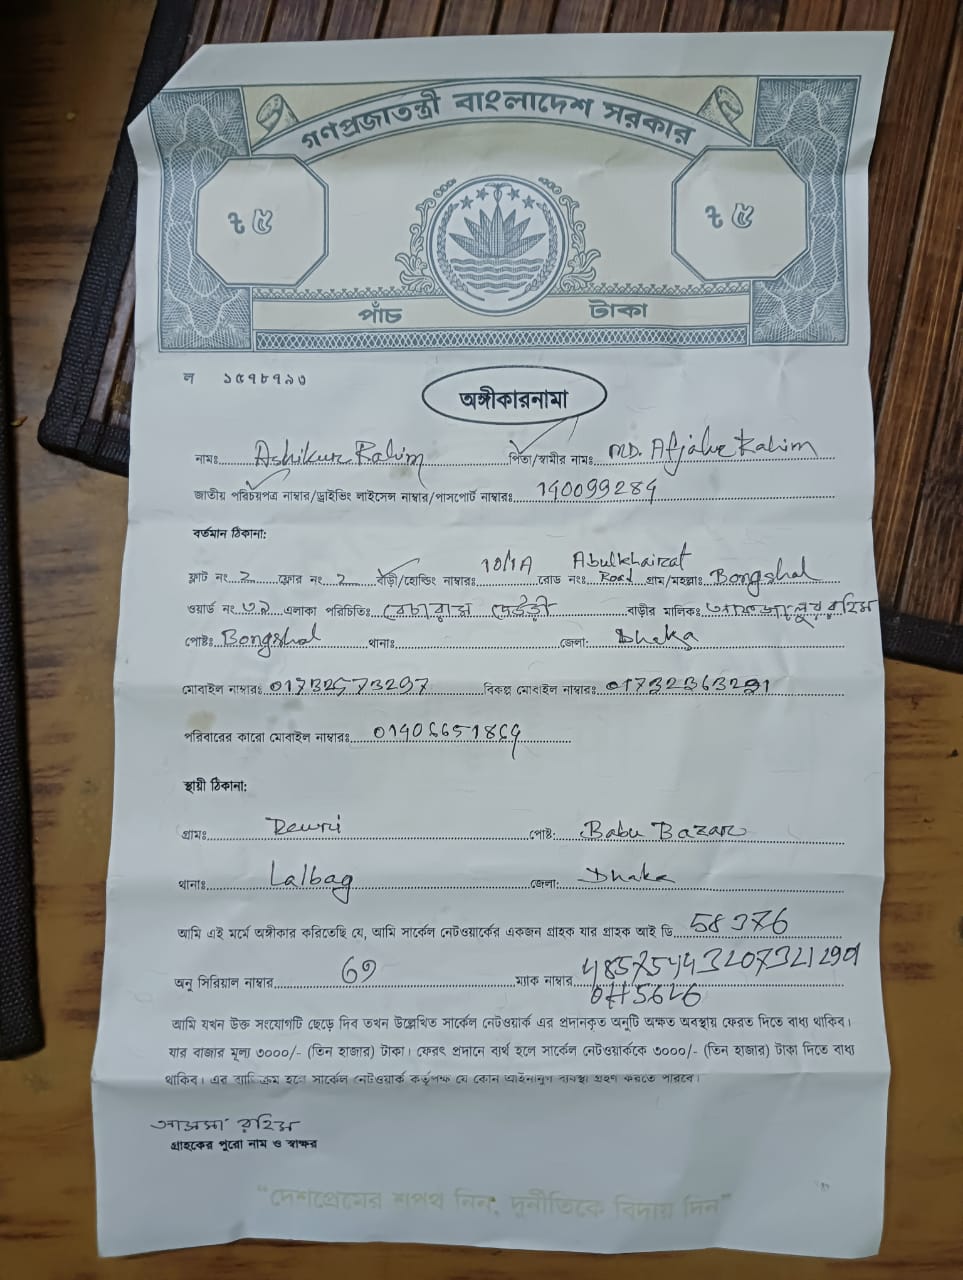 গণপ্রজাতন্ত্রী বাংলাদেশ সরকার
৳ ৫ ৳ ৫
পাঁচ টাকা
ল ১৫৭৮৭৯৩
অঙ্গীকারনামা
নামঃ Ashikur Rahim পিতা/স্বামীর নামঃ MD. Afjalur Rahim
জাতীয় পরিচয়পত্র নাম্বার/ড্রাইভিং লাইসেন্স নাম্বার/পাসপোর্ট নাম্বারঃ
বর্তমান ঠিকানা:
ফ্লাট নং 2 ফ্লোর নং 2 বাড়ী/হোল্ডিং নাম্বারঃ 10/1A রোড নংঃ Abulkhairat Road গ্রাম/মহল্লাঃ Bongshal
ওয়ার্ড নং এলাকা পরিচিতিঃ বেচারাম দেউড়ী বাড়ীর মালিকঃ আফজালুর রহিম
পোষ্টঃ Bongshal থানাঃ জেলা: Dhaka
মোবাইল নাম্বারঃ 01732573297 বিকল্প মোবাইল নাম্বারঃ 01732363291
পরিবারের কারো মোবাইল নাম্বারঃ
স্থায়ী ঠিকানা:
গ্রামঃ Dewri পোষ্ট: Babu Bazar
থানাঃ Lalbag জেলা: Dhaka
আমি এই মর্মে অঙ্গীকার করিতেছি যে, আমি সার্কেল নেটওয়ার্কের একজন গ্রাহক যার গ্রাহক আই ডি 58376
অনু সিরিয়াল নাম্বার ম্যাক নাম্বার
আমি যখন উক্ত সংযোগটি ছেড়ে দিব তখন উল্লেখিত সার্কেল নেটওয়ার্ক এর প্রদানকৃত অনুটি অক্ষত অবস্থায় ফেরত দিতে বাধ্য থাকিব।
যার বাজার মূল্য ৩০০০/- (তিন হাজার) টাকা। ফেরৎ প্রদানে ব্যর্থ হলে সার্কেল নেটওয়ার্ককে ৩০০০/- (তিন হাজার) টাকা দিতে বাধ্য
থাকিব। এর ব্যতিক্রম হলে সার্কেল নেটওয়ার্ক কর্তৃপক্ষ যে কোন আইনানুগ ব্যবস্থা গ্রহণ করতে পারবে।
রহিম
গ্রাহকের পুরো নাম ও স্বাক্ষর
"দেশপ্রেমের শপথ নিন, দুর্নীতিকে বিদায় দিন"